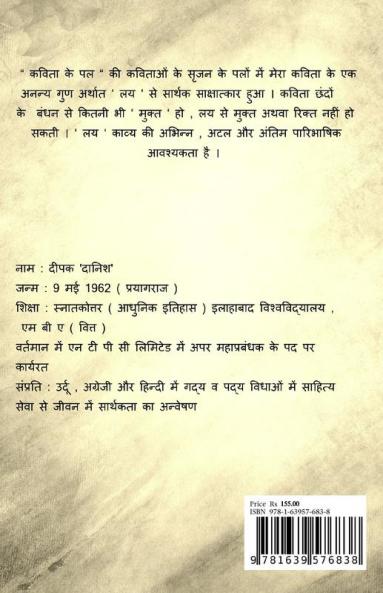 " कविता के पल " की कविताओं के सृजन के पलों में मेरा कविता के एक
अनन्य गुण अर्थात ' लय ' से सार्थक साक्षात्कार हुआ । कविता छंदों
के बंधन से कितनी भी ' मुक्त ' हो , लय से मुक्त अथवा रिक्त नहीं हो
सकती । ' लय ' काव्य की अभिन्न , अटल और अंतिम पारिभाषिक
आवश्यकता है ।
नाम : दीपक 'दानिश'
जन्म : 9 मई 1962 ( प्रयागराज )
शिक्षा : स्नातकोत्तर ( आधुनिक इतिहास ) इलाहाबाद विश्वविद्यालय ,
एम बी ए ( वित्त )
वर्तमान में एन टी पी सी लिमिटेड में अपर महाप्रबंधक के पद पर
कार्यरत
संप्रति : उर्दू , अग्रेजी और हिन्दी में गद्य व पद्य विधाओं में साहित्य
सेवा से जीवन में सार्थकता का अन्वेषण
Price Rs 155.00
ISBN 978-1-63957-683-8
9 781639 576838